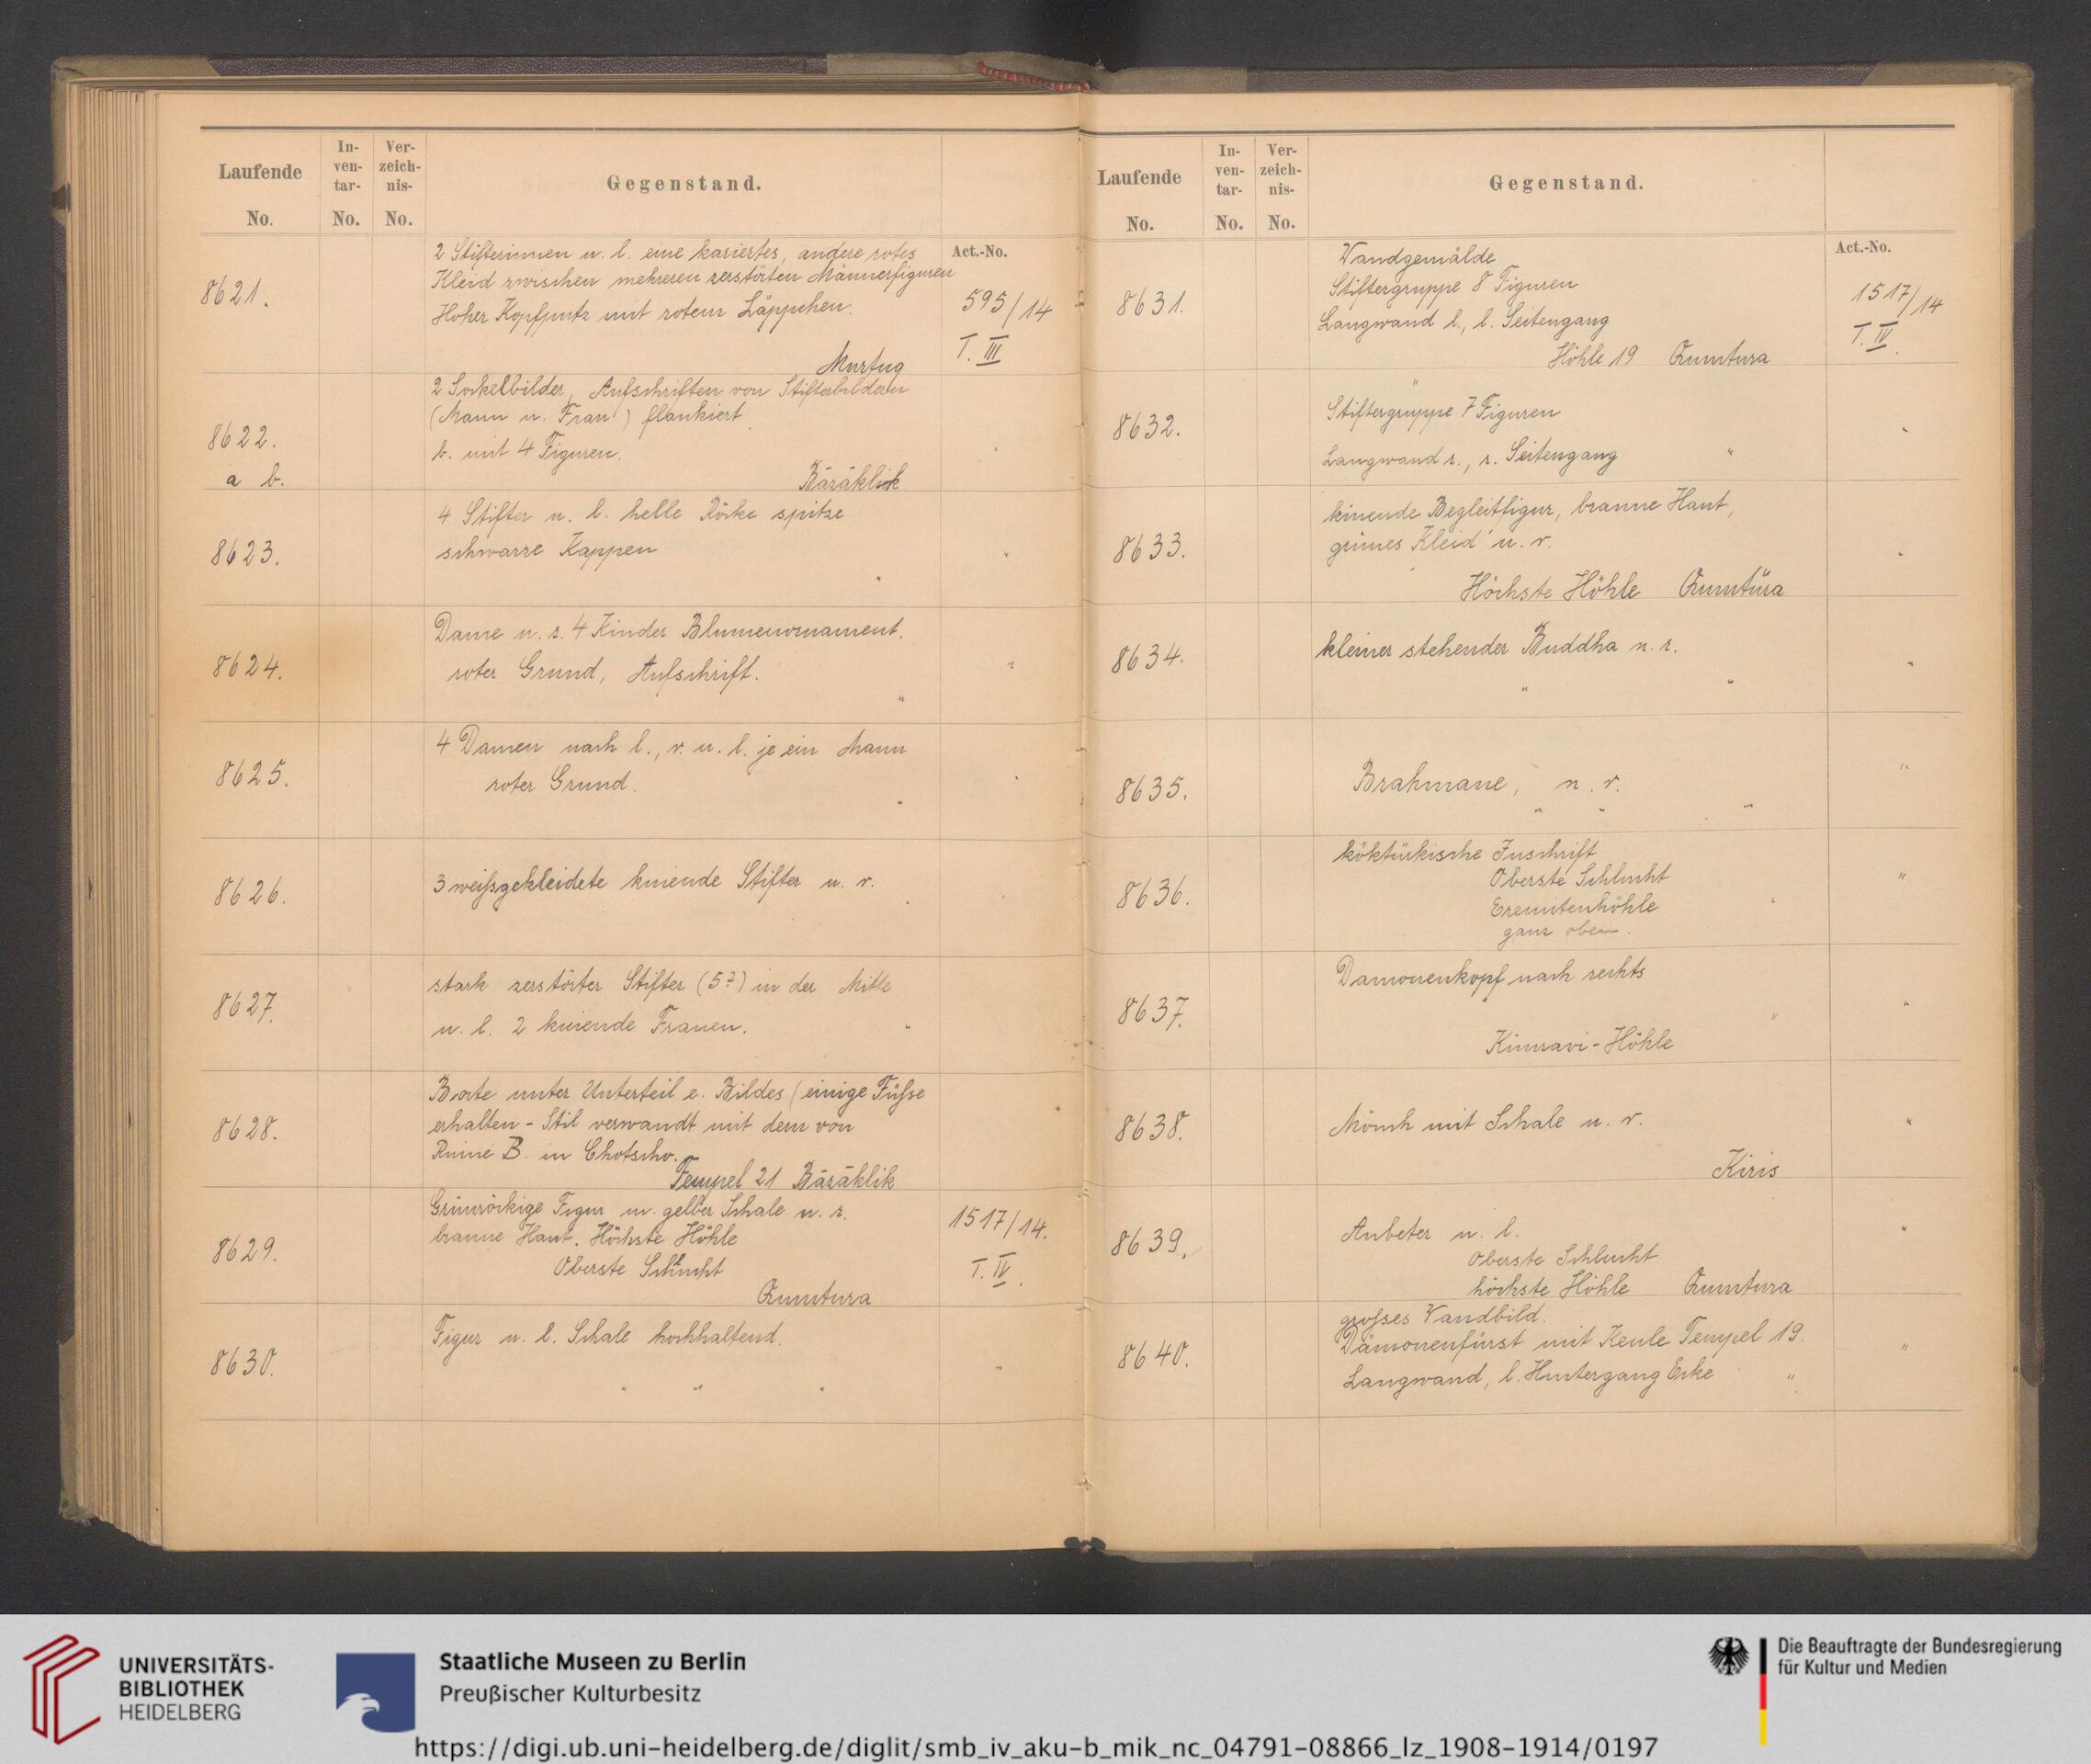 Laufende No.
In-ven-tar- No.
Ver-zeich-nis- No.
Gegenstand.
Act.-No.
8621.
2 Stifterinnen n. l. eine kariertes, andere rotes
Kleid zwischen mehreren zerstörten Männerfiguren
Hoher Kopfputz mit rotem Läppchen.
Murtuq
595/14
T. III
8622.
a b.
2 Sockelbilder, Aufschriften von Stifterbildern
(Mann u. Frau) flankiert
b. mit 4 Figuren.
Bäzäklik
"
8623.
4 Stifter n. l. helle Röcke spitze
schwarze Kappen
"
"
8624.
Dame n. r. 4 Kinder Blumenornament.
roter Grund, Aufschrift.
"
"
8625.
4 Damen nach l., r. u. l. je ein Mann
roter Grund.
"
"
8626.
3 weißgekleidete kniende Stifter n. r.
"
8627.
stark zerstörter Stifter (5?) in der Mitte
n. l. 2 kniende Frauen.
"
8628.
Borte unter Unterteil e. Bildes (einige Füße
erhalten - Stil verwandt mit dem von
Ruine B. in Chotscho.
Tempel 21 Bäzäklik
8629.
Grünröckige Figur m. gelber Schale n. r.
braune Haut. Höchste Höhle
Oberste Schlucht
Qumtura
1517/14.
T. IV.
8630.
Figur n. l. Schale hochhaltend.
" " "
"
Laufende No.
In-ven-tar- No.
Ver-zeich-nis- No.
Gegenstand.
Act.-No.
8631.
Wandgemälde
Stiftergruppe 8 Figuren
Langwand l., l. Seitengang
Höhle 19 Qumtura
1517/14
T. IV.
8632.
"
Stiftergruppe 7 Figuren
Langwand r., r. Seitengang "
"
8633.
kniende Begleitfigur, braune Haut,
grünes Kleid n. r.
Höchste Höhle Qumtura
"
8634.
kleiner stehender Buddha n. r.
" "
"
8635.
Brahmane, n. r.
" " "
"
8636.
köktürkische Inschrift
Oberste Schlucht
Eremitenhöhle "
ganz oben.
"
8637.
Damonenkopf nach rechts
"
Kinnari-Höhle
"
8638.
Mönch mit Schale n. r.
Kiris
"
8639.
Anbeter n. l.
Oberste Schlucht
höchste Höhle Qumtura
"
8640.
großes Wandbild.
Dämonenfürst mit Keule Tempel 19.
Langwand, l. Hintergang Ecke "
"
UNIVERSITÄTS-
BIBLIOTHEK
HEIDELBERG
Staatliche Museen zu Berlin
Preußischer Kulturbesitz
Die Beauftragte der Bundesregierung
für Kultur und Medien
https://digi.ub.uni-heidelberg.de/diglit/smb_iv_aku-b_mik_nc_04791-08866_lz_1908-1914/0197